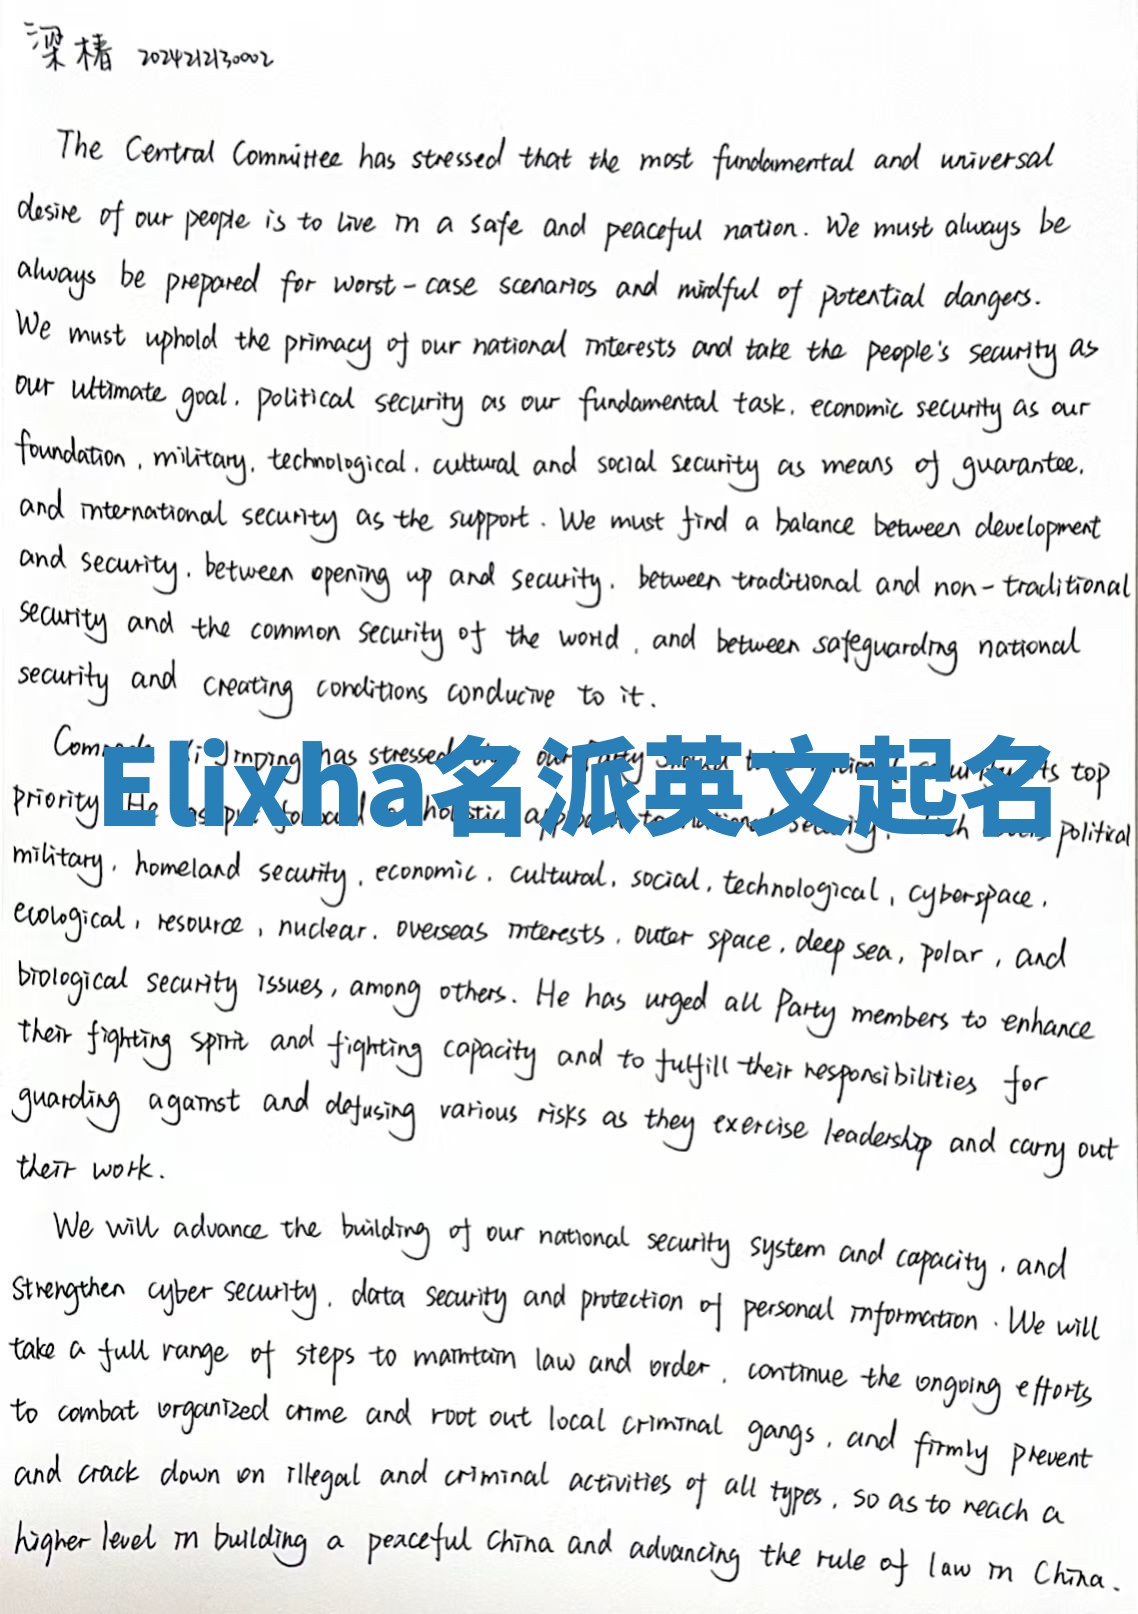 梁椿 2024212130002
The Central Committee has stressed that the most fundamental and universal
desire of our people is to live in a safe and peaceful nation. We must always be
always be prepared for worst-case scenarios and mindful of potential dangers.
We must uphold the primacy of our national interests and take the people's security as
our ultimate goal, political security as our fundamental task, economic security as our
foundation, military, technological, cultural and social security as means of guarantee,
and international security as the support. We must find a balance between development
and security, between opening up and security, between traditional and non-traditional
security and the common security of the world, and between safeguarding national
security and creating conditions conducive to it.
Jinping has stressed our Party should top
Elixha名派英文起名
priority. He holistic political
military, homeland security, economic, cultural, social, technological, cyberspace,
ecological, resource, nuclear, overseas interests, outer space, deep sea, polar, and
biological security issues, among others. He has urged all Party members to enhance
their fighting spirit and fighting capacity and to fulfill their responsibilities for
guarding against and defusing various risks as they exercise leadership and carry out
their work.
We will advance the building of our national security system and capacity, and
strengthen cyber security, data security and protection of personal information. We will
take a full range of steps to maintain law and order, continue the ongoing efforts
to combat organized crime and root out local criminal gangs, and firmly prevent
and crack down on illegal and criminal activities of all types, so as to reach a
higher level in building a peaceful China and advancing the rule of law in China.